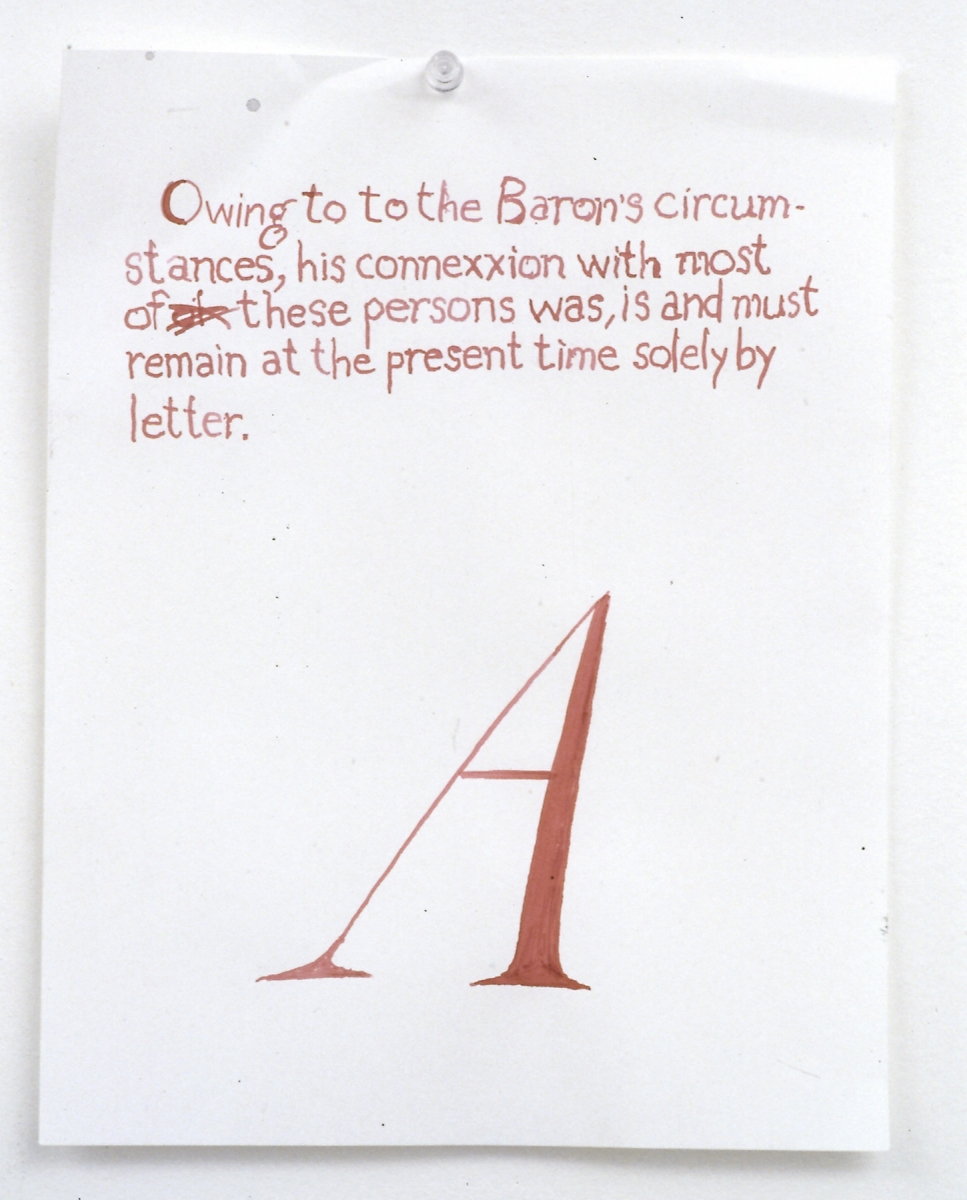 Owing to to the Baron's circum-
stances, his connexxion with most
of these persons was, is and must
remain at the present time solely by
letter.
A